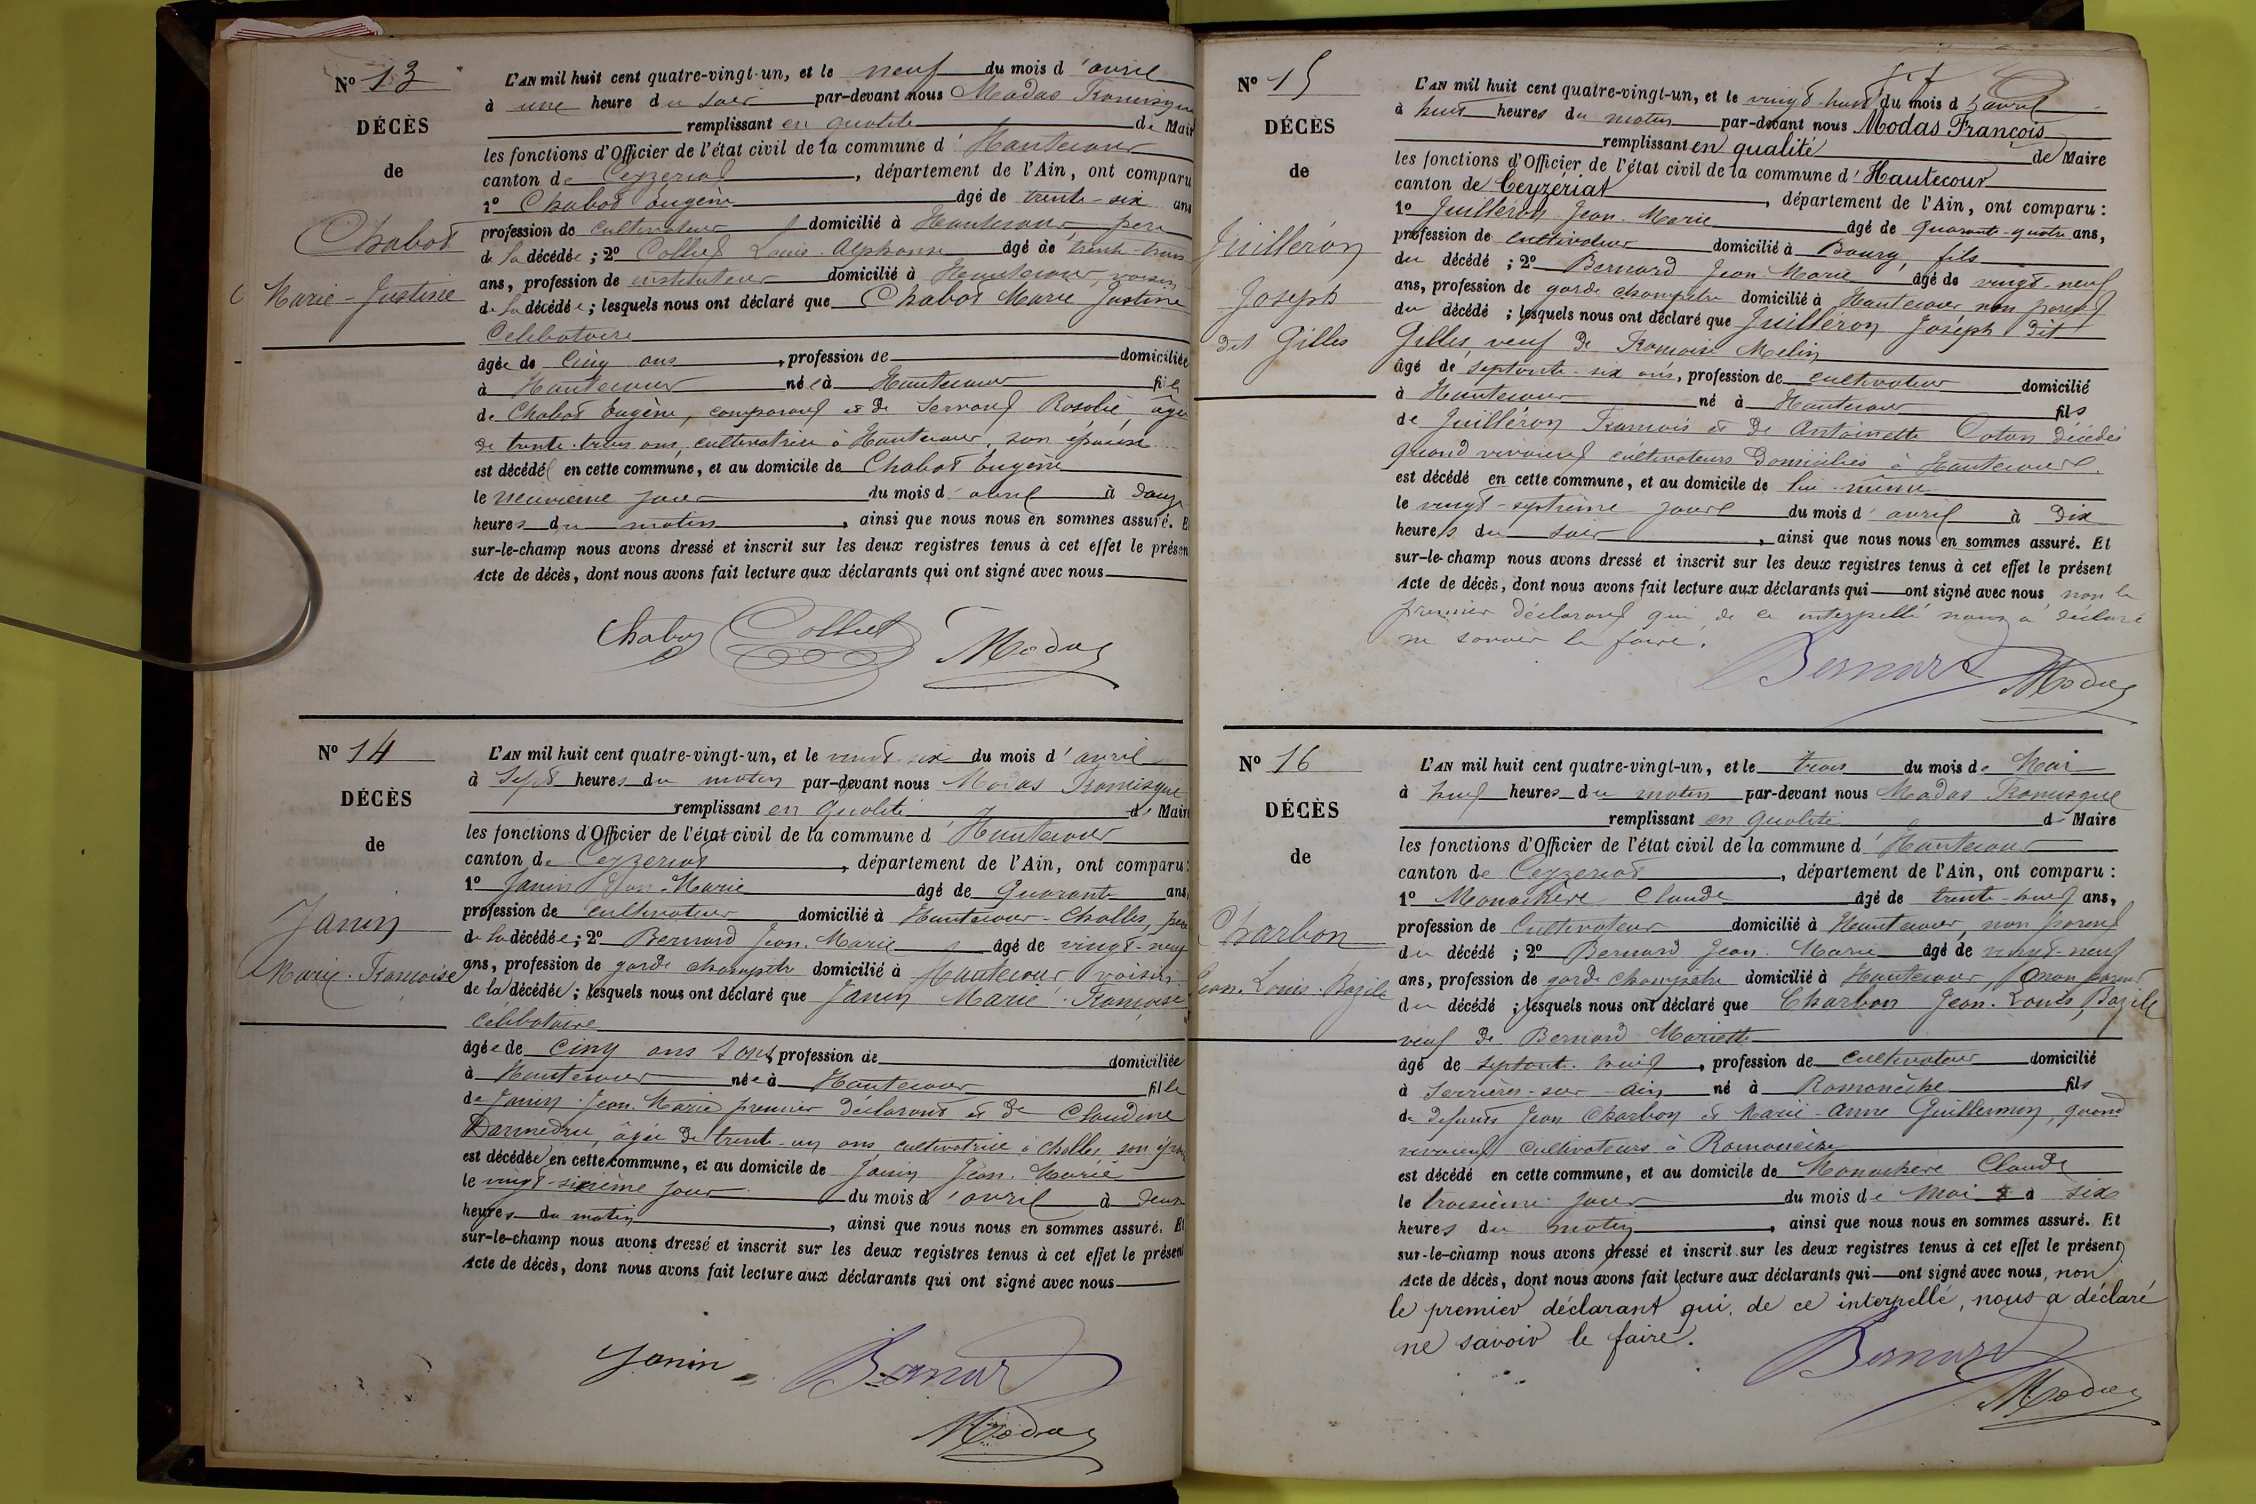 N° 13
DÉCÈS
de
Chabot
Marie-Justine
L'AN mil huit cent quatre-vingt-un, et le neuf du mois d'avril
à une heure du soir par-devant nous Modas Francisque
remplissant en qualité de Mair
les fonctions d'Officier de l'état civil de la commune d'Hautecour
canton de Ceyzeriat, département de l'Ain, ont comparu
1° Chabot Eugène âgé de trente-six ans
profession de cultivateur domicilié à Hautecour père
de la décédée; 2° Collet Louis Alphonse âgé de trente-trois
ans, profession de instituteur domicilié à Hautecour, voisin
de la décédée; lesquels nous ont déclaré que Chabot Marie Justine
Celibataire
âgée de cinq ans, profession de domiciliée
à Hautecour née à Hautecour fille
de Chabot Eugène, comparant et de Servant Rosalie âgée
de trente-trois ans, cultivatrice à Hautecour, son épouse
est décédée en cette commune, et au domicile de Chabot Eugène
le neuvième jour du mois d'avril à douze
heures du matin, ainsi que nous nous en sommes assuré. E
sur-le-champ nous avons dressé et inscrit sur les deux registres tenus à cet effet le présen
Acte de décès, dont nous avons fait lecture aux déclarants qui ont signé avec nous
Chabot Collet Modas
N° 14
DÉCÈS
de
Janin
Marie-Françoise
L'AN mil huit cent quatre-vingt-un, et le vingt-six du mois d'avril
à sept heures du matin par-devant nous Modas Francisque
remplissant en qualité de Maire
les fonctions d'Officier de l'état civil de la commune d'Hautecour
canton de Ceyzeriat, département de l'Ain, ont comparu:
1° Janin Jean-Marie âgé de Quarante ans,
profession de cultivateur domicilié à Hautecour-Cholles, père
de la décédée; 2° Bernard Jean-Marie âgé de vingt-neuf
ans, profession de garde champêtre domicilié à Hautecour voisin
de la décédée; lesquels nous ont déclaré que Janin Marie-Françoise
Celibataire
âgée de cinq ans, profession de domiciliée
à Hautecour née à Hautecour fille
de Janin Jean-Marie premier déclarant et de Claudine
Darmedru, âgée de trente-un ans, cultivatrice à Cholles, son épouse
est décédée en cette commune, et au domicile de Janin Jean-Marie
le vingt-sixième jour du mois d'avril à deux
heures du matin, ainsi que nous nous en sommes assuré. Et
sur-le-champ nous avons dressé et inscrit sur les deux registres tenus à cet effet le présent
Acte de décès, dont nous avons fait lecture aux déclarants qui ont signé avec nous
Janin Bernard
Modas
N° 15
DÉCÈS
de
Juilléron
Joseph
dit Gilles
L'AN mil huit cent quatre-vingt-un, et le vingt-huit du mois d'avril
à huit heures du matin par-devant nous Modas François
remplissant en qualité de Maire
les fonctions d'Officier de l'état civil de la commune d'Hautecour
canton de Ceyzériat, département de l'Ain, ont comparu:
1° Juilléron Jean-Marie âgé de Quarante-quatre ans,
profession de cultivateur domicilié à Bourg, fils
du décédé; 2° Bernard Jean-Marie âgé de vingt-neuf
ans, profession de garde champêtre domicilié à Hautecour non parent
du décédé; lesquels nous ont déclaré que Juilléron Joseph dit
Gilles, veuf de Françoise Melin
âgé de septante-six ans, profession de cultivateur domicilié
à Hautecour né à Hautecour fils
de Juilléron François et de Antoinette Cotan décédés
quand vivaient cultivateurs domiciliés à Hautecour
est décédé en cette commune, et au domicile de lui-même
le vingt-septième jour du mois d'avril à dix
heures du soir, ainsi que nous nous en sommes assuré. Et
sur-le-champ nous avons dressé et inscrit sur les deux registres tenus à cet effet le présent
Acte de décès, dont nous avons fait lecture aux déclarants qui ont signé avec nous non le
premier déclarant qui, de ce interpellé nous a déclaré
ne savoir le faire.
Bernard Modas
N° 16
DÉCÈS
de
Charbon
Jean-Louis-Bazile
L'AN mil huit cent quatre-vingt-un, et le trois du mois de Mai
à huit heures du matin par-devant nous Modas Francisque
remplissant en qualité de Maire
les fonctions d'Officier de l'état civil de la commune d'Hautecour
canton de Ceyzeriat, département de l'Ain, ont comparu:
1° Monachère Claude âgé de trente-neuf ans,
profession de Cultivateur domicilié à Hautecour, non parent
du décédé; 2° Bernard Jean-Marie âgé de vingt-neuf
ans, profession de garde champêtre domicilié à Hautecour, non parent
du décédé; lesquels nous ont déclaré que Charbon Jean-Louis, Bazile
veuf de Bernard Mariette
âgé de septante-huit, profession de cultivateur domicilié
à Serrières-sur-Ain né à Romanèche fils
de defunts Jean Charbon et Marie-Anne Guillermin, quand
vivaient cultivateurs à Romanèche
est décédé en cette commune, et au domicile de Monachère Claude
le troisième jour du mois de Mai à six
heures du matin, ainsi que nous nous en sommes assuré. Et
sur-le-champ nous avons dressé et inscrit sur les deux registres tenus à cet effet le présent
Acte de décès, dont nous avons fait lecture aux déclarants qui ont signé avec nous, non
le premier déclarant qui, de ce interpellé, nous a déclaré
ne savoir le faire.
Bernard
Modas